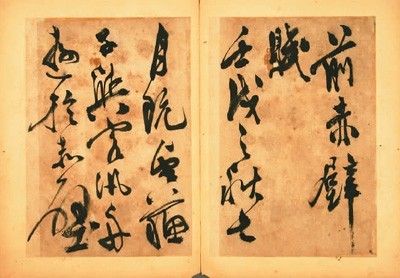 前赤壁
賦
壬戌之秋七
月既望蘇
子與客泛舟
遊於赤壁